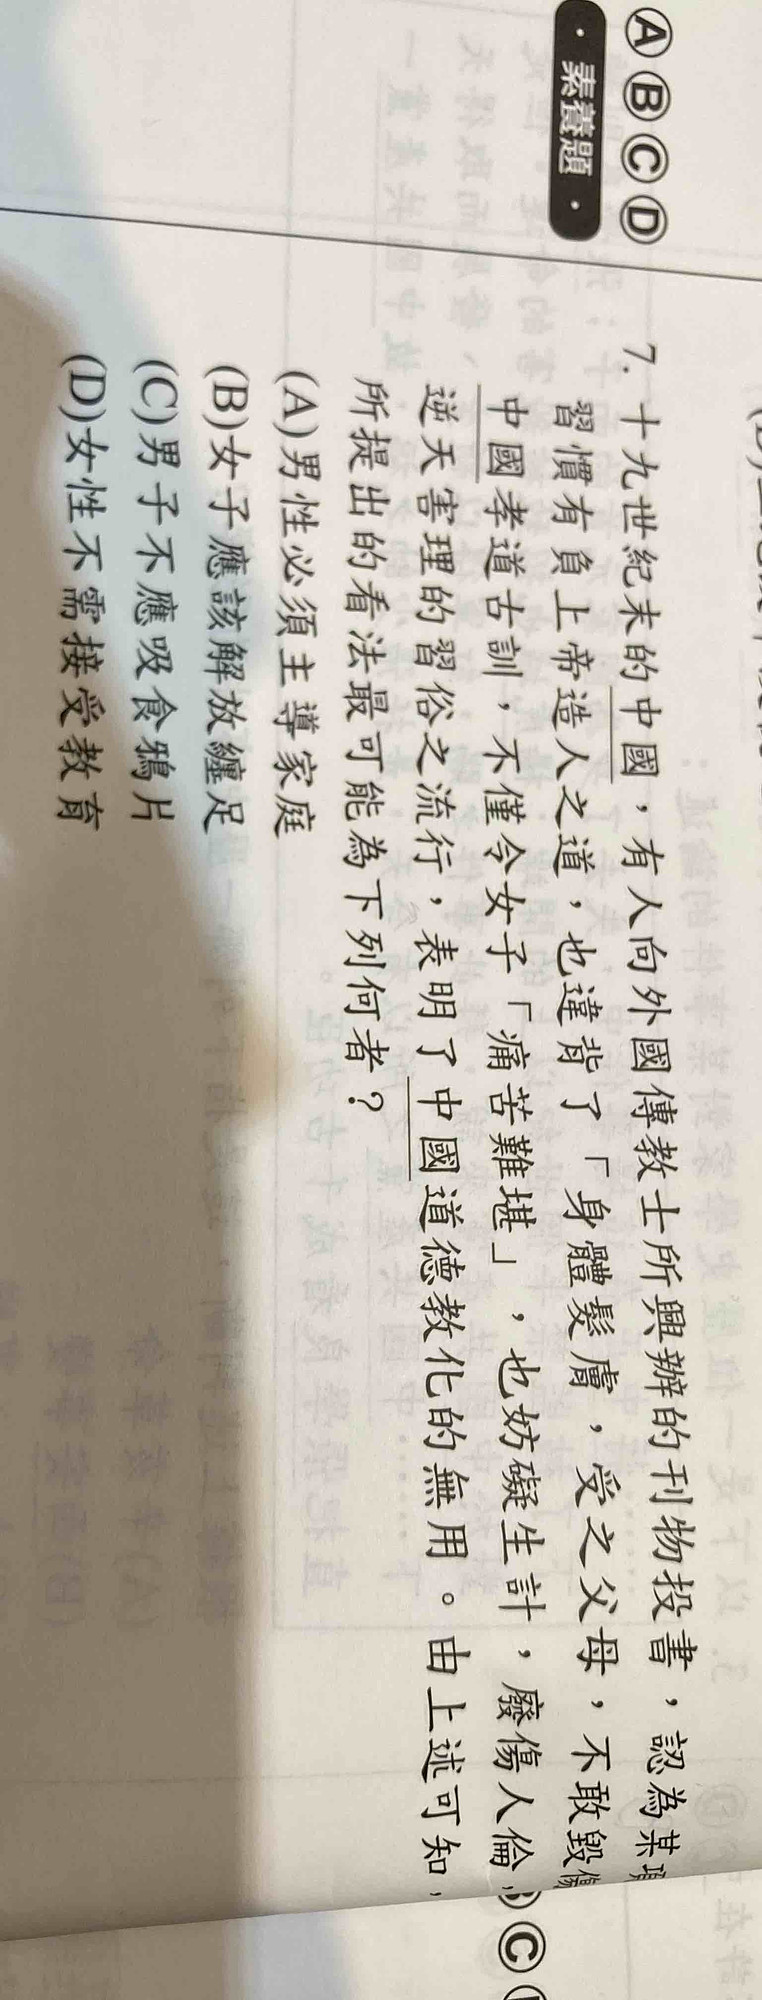 ⒶⒷⒸⒹ
・素養題・
7. 十九世紀末的中國，有人向外國傳教士所興辦的刊物投書，認為某項
習慣有負上帝造人之道，也違背了「身體髮膚，受之父母，不敢毀傷
中國孝道古訓，不僅令女子「痛苦難堪」，也妨礙生計，廢傷人倫，
逆天害理的習俗之流行，表明了中國道德教化的無用。由上述可知，
所提出的看法最可能為下列何者？
(A)男性必須主導家庭
(B)女子應該解放纏足
(C)男子不應吸食鴉片
(D)女性不需接受教育
Ⓒ